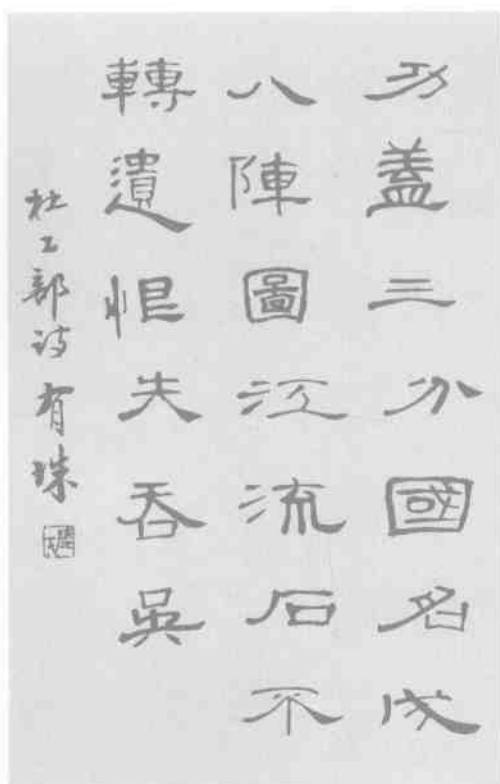 功蓋三分國名成
八陣圖江流石不
轉遺恨失吞吳
杜工部詩有珠